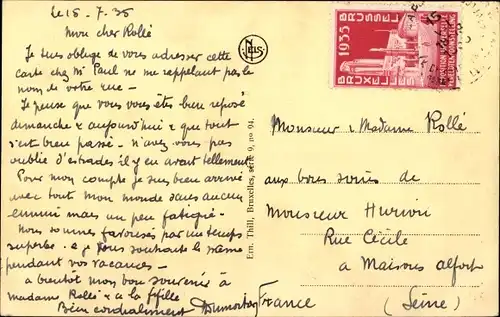 le 15 - 7 - 35
Mon cher Rollé
Je suis obligé de vous adresser cette
carte chez Mr Paul ne me rappelant pas le
nom de votre rue -
Je pense que vous vous êtes bien reposé
dimanche & aujourd'hui & que tout
s'est bien passé - n'avez vous pas
oublié d'estrades il y en avait tellement
Pour mon compte je suis bien arrivé
avec tout mon monde sans aucun
ennui mais un peu fatigué -
Nous sommes favorisés par un temps
superbe & je vous souhaite le même
pendant vos vacances -
à bientôt mon bon souvenir à
Madame Rollé & à la fille
Bien cordialement Dumortay
NELS
Ern. Thill, Bruxelles, série 9, no 94.
1935
BRUSSEL
BRUXELLES
Monsieur & Madame Rollé
aux bons soins de
Monsieur Hurion
Rue Cécile
à Maisons alfort
France (Seine)